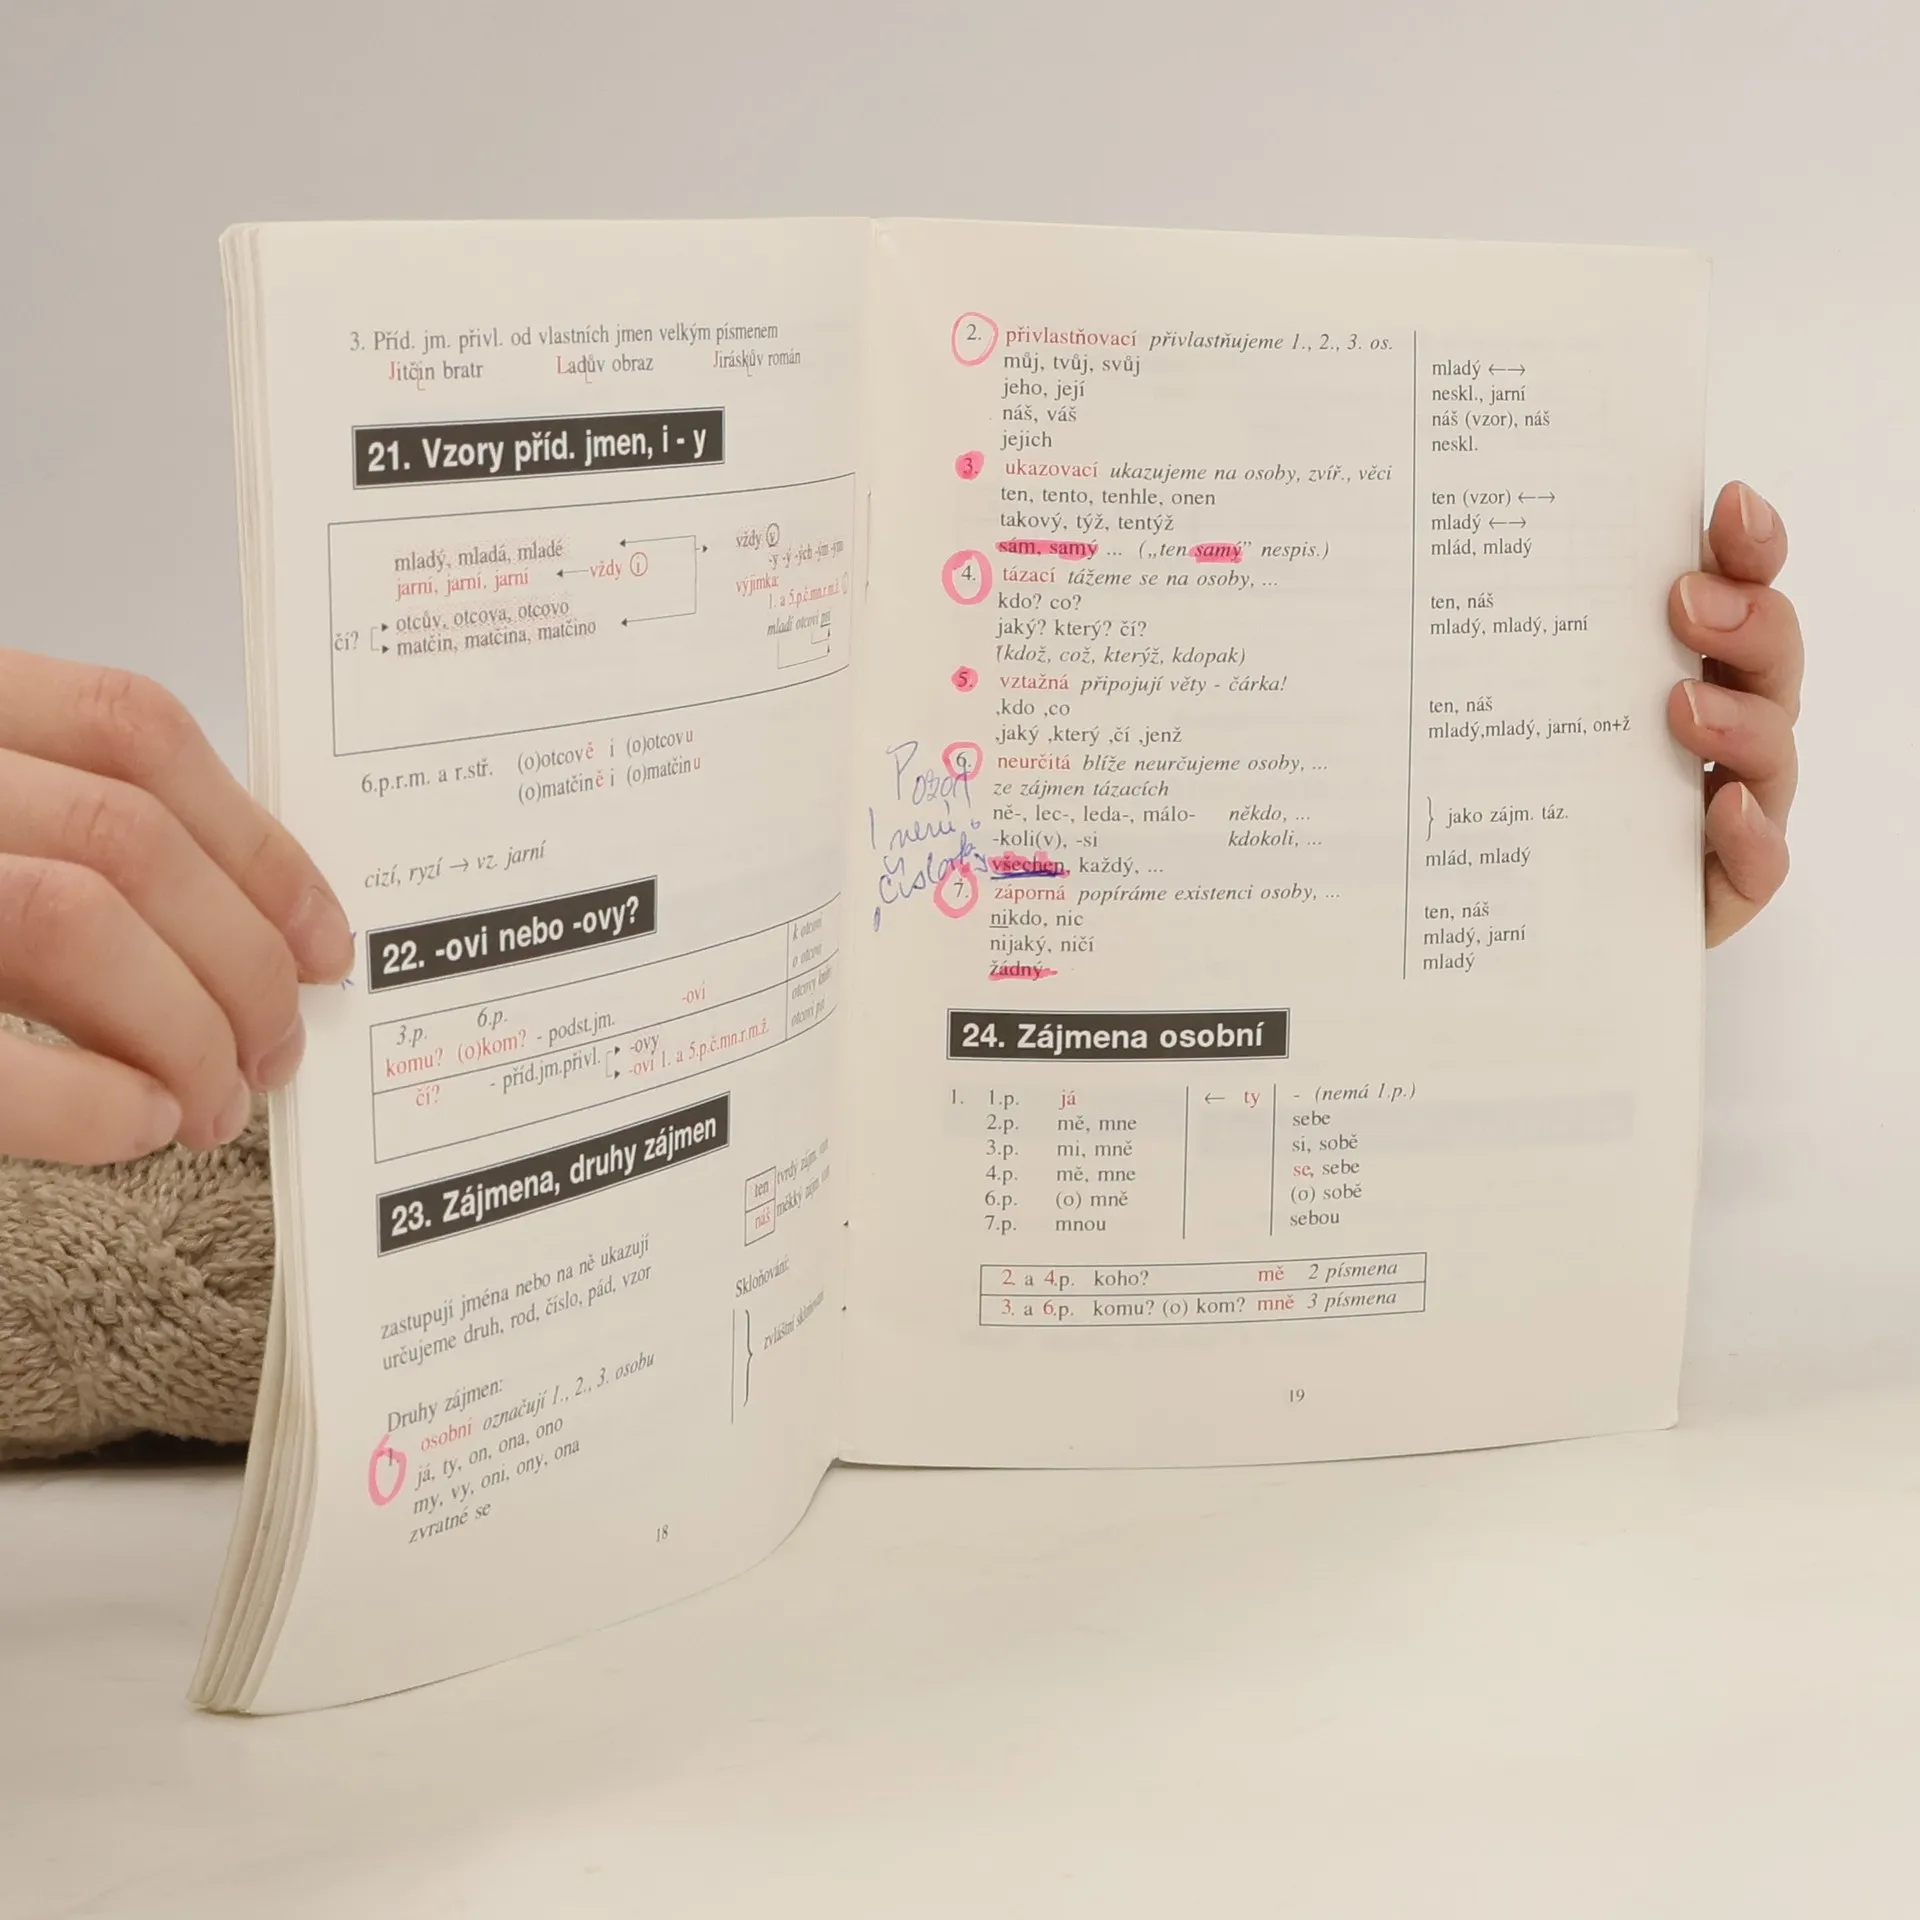 3. Příd. jm. přivl. od vlastních jmen velkým písmenem
Jitčin bratr Ladův obraz Jiráskův román
21. Vzory příd. jmen, i - y
mladý, mladá, mladé
jarní, jarní, jarní vždy i
čí? otcův, otcova, otcovo
matčin, matčina, matčino
vždy y
-y -ý -ých -ým -ým
výjimka:
1. a 5.p.č.mn.r.m.ž.
mladí otcovi psi
6.p.r.m. a r.stř. (o)otcově i (o)otcovu
(o)matčině i (o)matčinu
cizí, ryzí → vz. jarní
22. -ovi nebo -ovy?
3.p. 6.p.
komu? (o)kom? - podst.jm. -ovi
k otcovi
o otcovi
čí? - příd.jm.přivl. -ovy
-ovi 1. a 5.p.č.mn.r.m.ž.
otcovy knihy
otcovi psi
23. Zájmena, druhy zájmen
ten tvrdý zájm.
náš měkký zájm.
zastupují jména nebo na ně ukazují
určujeme druh, rod, číslo, pád, vzor
Skloňování:
Druhy zájmen:
1. osobní označují 1., 2., 3. osobu
já, ty, on, ona, ono
my, vy, oni, ony, ona
zvratné se
zvláštní skloňování
18
2. přivlastňovací přivlastňujeme 1., 2., 3. os.
můj, tvůj, svůj mladý ←→
jeho, její neskl., jarní
náš, váš náš (vzor), náš
jejich neskl.
3. ukazovací ukazujeme na osoby, zvíř., věci
ten, tento, tenhle, onen ten (vzor) ←→
takový, týž, tentýž mladý ←→
sám, samý ... („ten samý” nespis.) mlád, mladý
4. tázací tážeme se na osoby, ...
kdo? co? ten, náš
jaký? který? čí? mladý, mladý, jarní
(kdož, což, kterýž, kdopak)
5. vztažná připojují věty - čárka!
,kdo ,co ten, náš
,jaký ,který ,čí ,jenž mladý,mladý, jarní, on+ž
6. neurčitá blíže neurčujeme osoby, ...
ze zájmen tázacích
ně-, lec-, leda-, málo- někdo, ...
-koli(v), -si kdokoli, ...
} jako zájm. táz.
všechen, každý, ... mlád, mladý
Pozor
není
číslovka
7. záporná popíráme existenci osoby, ...
nikdo, nic ten, náš
nijaký, ničí mladý, jarní
žádný mladý
24. Zájmena osobní
1. 1.p. já ← ty - (nemá 1.p.)
2.p. mě, mne sebe
3.p. mi, mně si, sobě
4.p. mě, mne se, sebe
6.p. (o) mně (o) sobě
7.p. mnou sebou
2. a 4.p. koho? mě 2 písmena
3. a 6.p. komu? (o) kom? mně 3 písmena
19